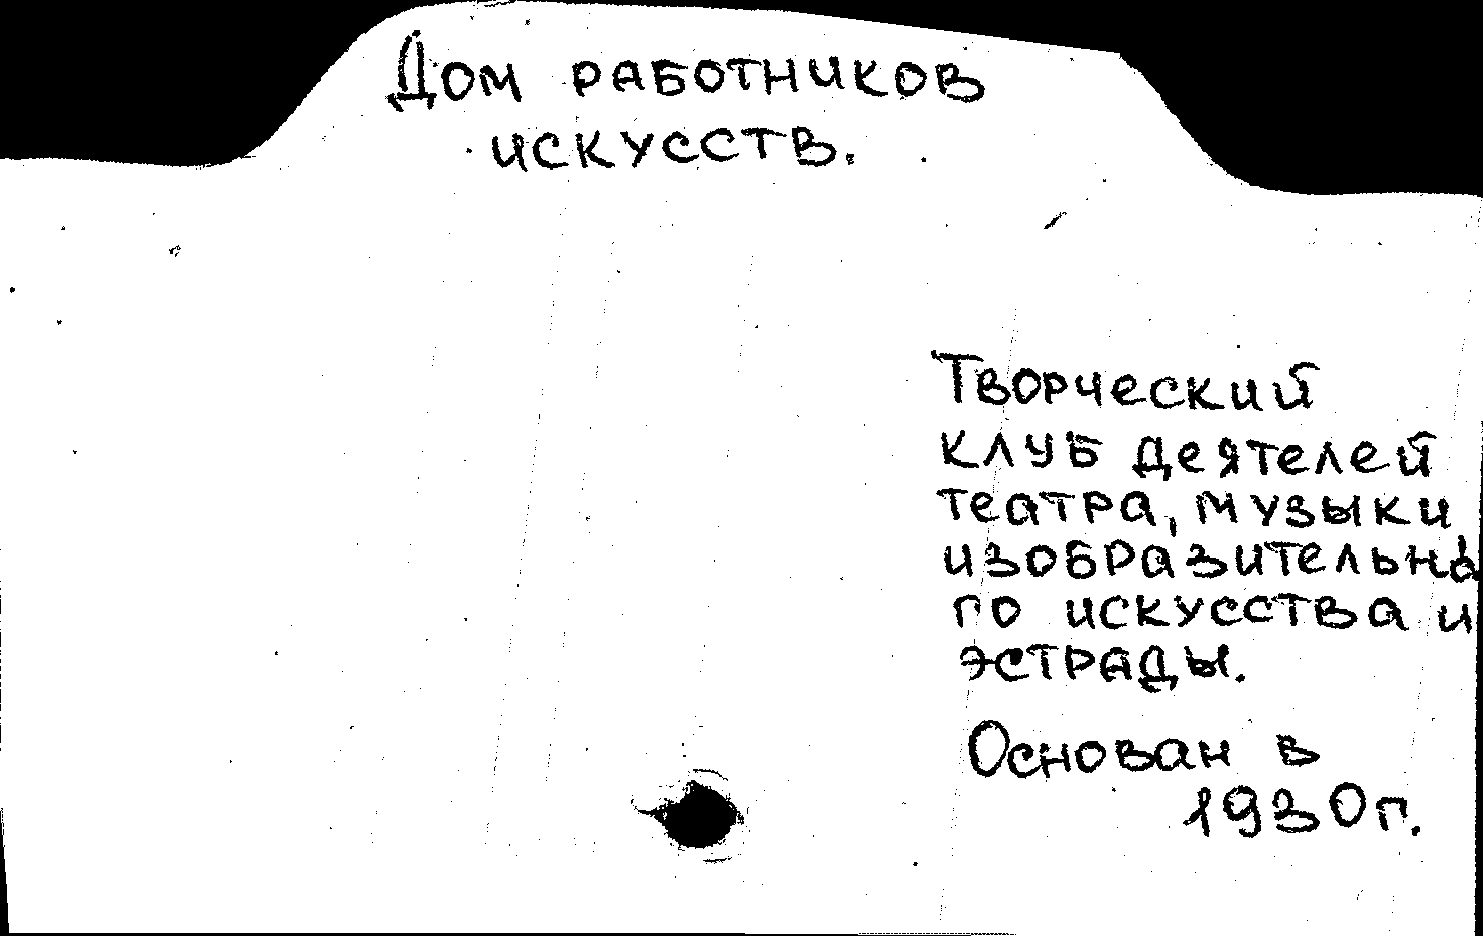 Дом работников
искусств.
Творческий
клуб деятелей
театра, музыки,
изобразительно
го искусства и
эстрады.
Основан в
1930г.